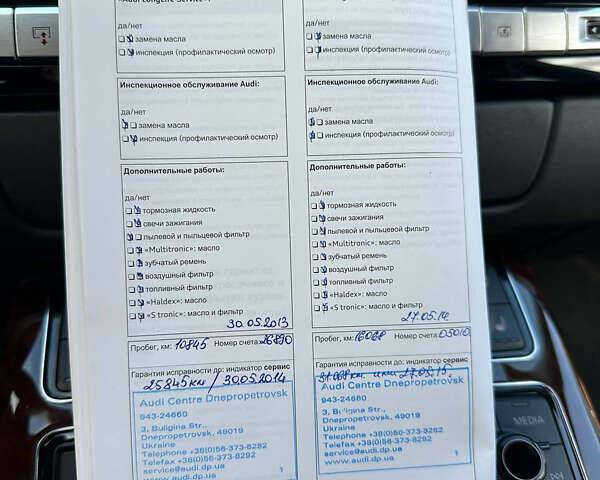 да/нет
замена масла
инспекция (профилактический осмотр)
Инспекционное обслуживание Audi:
да/нет
замена масла
инспекция (профилактический осмотр)
Дополнительные работы:
да/нет
тормозная жидкость
свечи зажигания
пылевой и пыльцевой фильтр
«Multitronic»: масло
зубчатый ремень
воздушный фильтр
топливный фильтр
«Haldex»: масло
«S tronic»: масло и фильтр
30.05.2013
Пробег, км: 10845 Номер счета:
Гарантия исправности до: индикатор сервис
25845км / 30.05.2014
Audi Centre Dnepropetrovsk
943-24660
3, Buligina Str.,
Dnepropetrovsk, 49019
Ukraine
Telephone +38(0)56-373-8292
Telefax +38(0)56-373-8292
service@audi.dp.ua
www.audi.dp.ua
1
да/нет
замена масла
инспекция (профилактический осмотр)
Инспекционное обслуживание Audi:
да/нет
замена масла
инспекция (профилактический осмотр)
Дополнительные работы:
да/нет
тормозная жидкость
свечи зажигания
пылевой и пыльцевой фильтр
«Multitronic»: масло
зубчатый ремень
воздушный фильтр
топливный фильтр
«Haldex»: масло
«S tronic»: масло и фильтр
27.05.14
Пробег, км: 16068 Номер счета:
Гарантия исправности до: индикатор сервис
27.05.15.
Audi Centre Dnepropetrovsk
943-24660
3, Buligina Str.,
Dnepropetrovsk, 49019
Ukraine
Telephone +38(0)56-373-8292
Telefax +38(0)56-373-8292
service@audi.dp.ua
www.audi.dp.ua
1
MEDIA